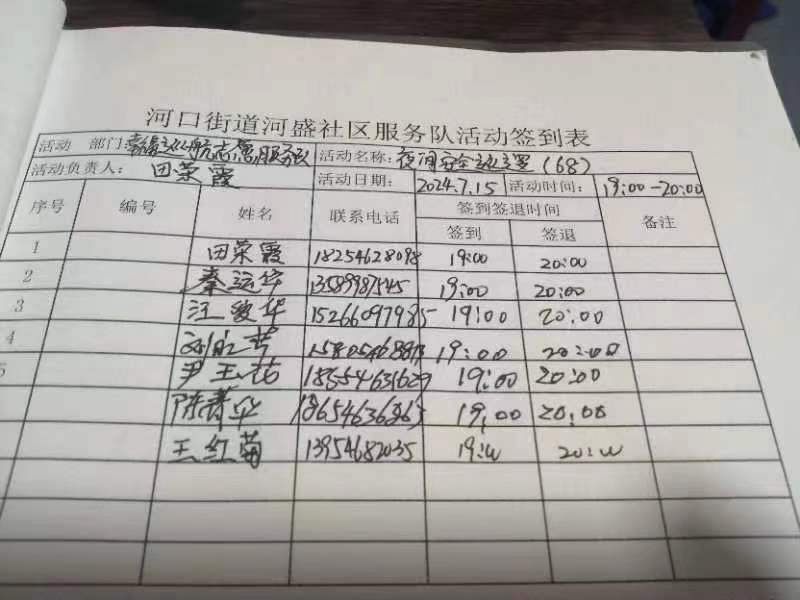 河口街道河盛社区服务队活动签到表
活动 部门: 航志愿服务队 活动名称: 夜间安全 (68)
活动负责人: 田荣霞 活动日期: 2024.7.15 活动时间: 19:00-20:00
序号 编号 姓名 联系电话 签到签退时间 备注
签到 签退
1 田荣霞 18254628098 19:00 20:00
2 秦运华 13589987545 19:00 20:00
3 汪俊华 15266097985 19:00 20:00
4 19:00 20:00
5 尹玉 18554631629 19:00 20:00
陈 华 19:00 20:00
王红菊 13954682035 19:00 20:00